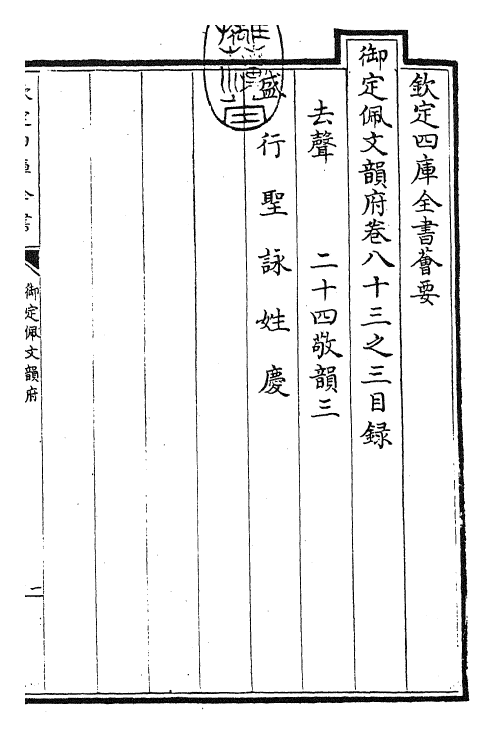 欽定四庫全書薈要
御定佩文韻府卷八十三之三目録
去聲　二十四敬韻三
盛行聖詠姓慶
御定佩文韻府